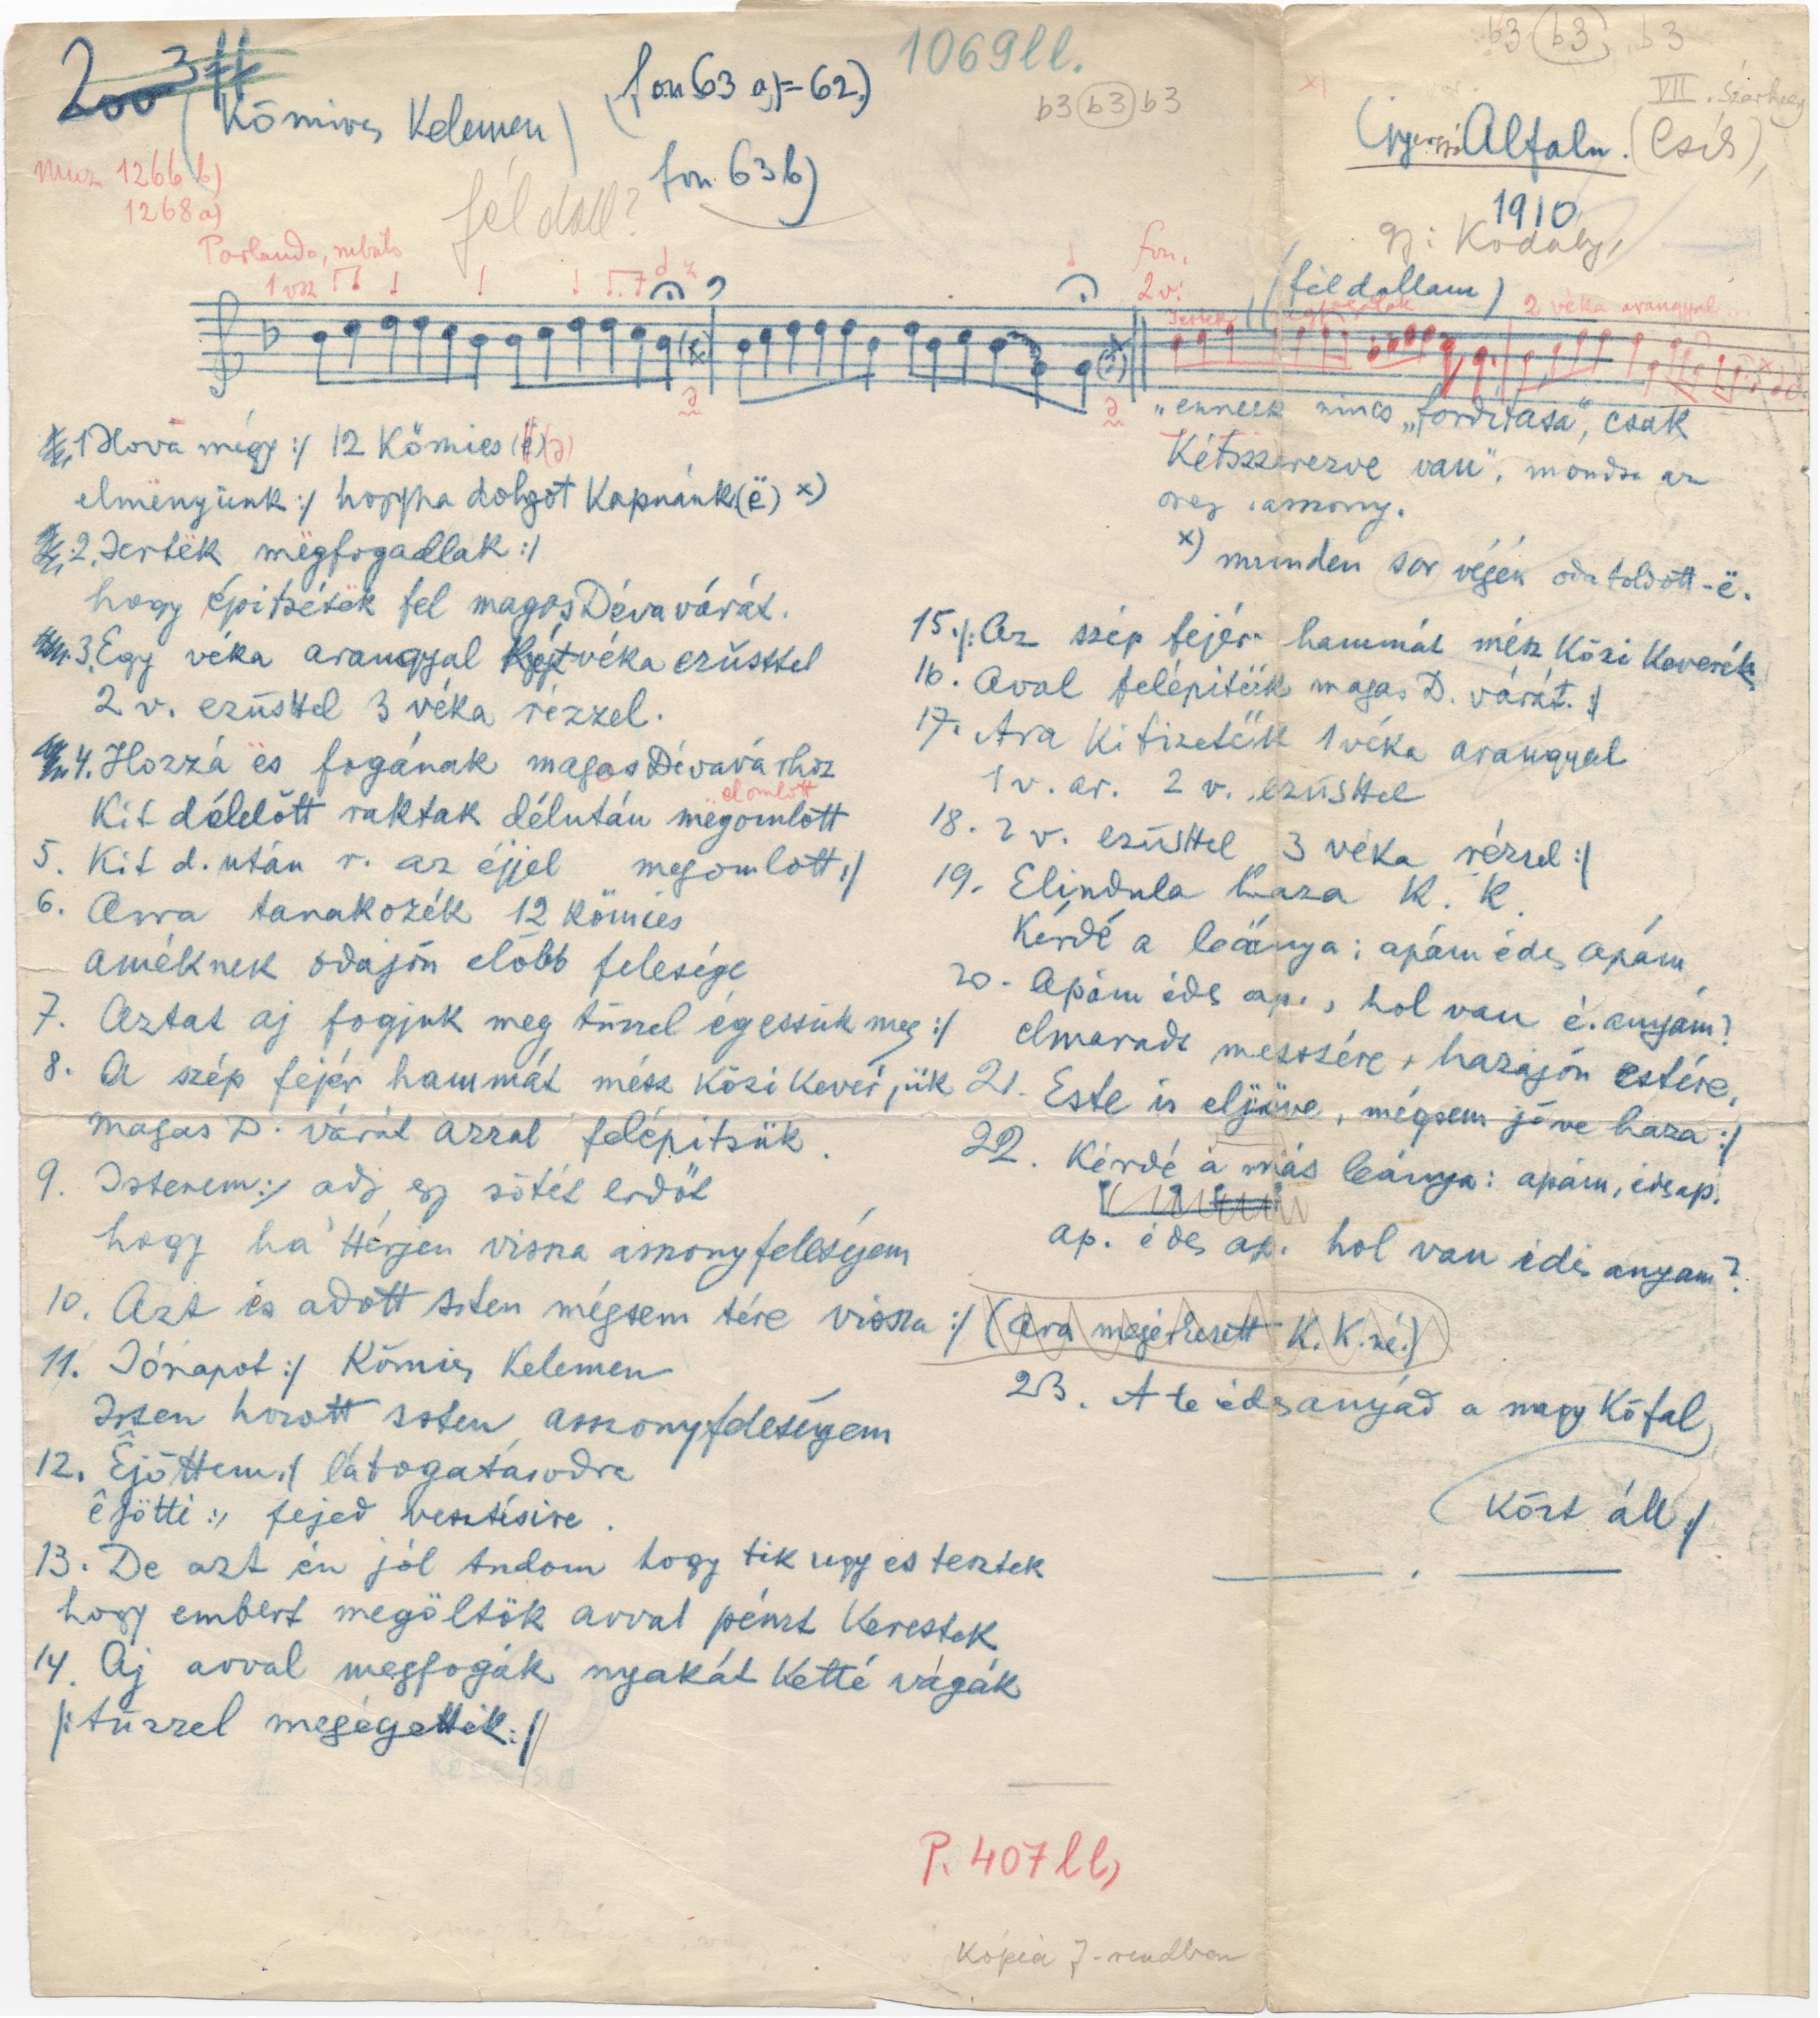 2003
(Kőmives Kelemen)
(fon 63 a)=62.)
fon 63b)
1069ll.
b3 (b3) b3
b3 (b3) b3
VII. Szárhegy
Gyergyó Alfalu. (Csík),
1910
gy: Kodály,
Muz 1266 b)
1268 a)
féldall?
Parlando, rubato
1 vsz
fon.
2 v.
(féldallam)
Jertëk
2 véka arannyal
„ennek nincs „fordítása”, csak
Kétszerezve van”, mondta az
öreg asszony.
x) minden sor végén oda toldott -ë.
1 Hová mégy :/ 12 Kőmies (ë) (ə)
elmënyünk :/ hogyha dolgot Kapnánk (ë) x)
2. Jertëk mëgfogadlak :/
hogy építsétëk fel magos Déva várát.
3. Egy véka arannyal két véka ezüsttel
2 v. ezüsttel 3 véka rézzel.
4. Hozzá ës fogának magas Dévavárhoz
elomlott
Kit délelőtt raktak délután mëgomlott
5. Kit d. után r. az éjjel megomlott :/
6. Arra tanakozék 12 kőmies
améknek odajön előbb felesége
7. Aztat aj fogjuk meg tűzzel égessük meg :/
8. A szép fejér hammát mész közi keverjük
magas D. várát azzal felépitsük.
9. Istenem :/ adj egy sötét erdőt
hogy ha' ttérjen vissza asszonyfeleségem
10. Azt is adott Isten mégsem tére vissza :/
11. Jónapot :/ Kőmies Kelemen
Isten hozott Isten asszonyfeleségem
12. Êjöttem :/ látogatásodra
êjötti :/ fejed vesztésire.
13. De azt én jól tudom hogy tik ugy es tesztek
hogy embert megöltök avval pénzt kerestek
14. Aj avval megfogák nyakát ketté vágák
/: tűzzel megégették :/
15. /: Az szép fejér hammát mész közi keverék
16. Aval felépiték magas D. várát. :/
17. Ara kifizeték 1 véka arannyal
1 v. ar. 2 v. ezüsttel
18. 2 v. ezüsttel 3 véka rézzel :/
19. Elindula haza K. K.
Kérdé a leánya: apám édes apám
20. Apám édes ap., hol van é. anyám?
elmaradt messzére, hazajön estére,
21. Este is eljöve, mégsem jöve haza :/
22. Kérdé a más leánya: apám, édes ap.
ap. édes ap. hol van édes anyam?
(Ara megérkezett K. K.né.)
23. A te édesanyád a nagy Kőfal
közt áll :/
P. 407 ll,
Kópia J-rendben